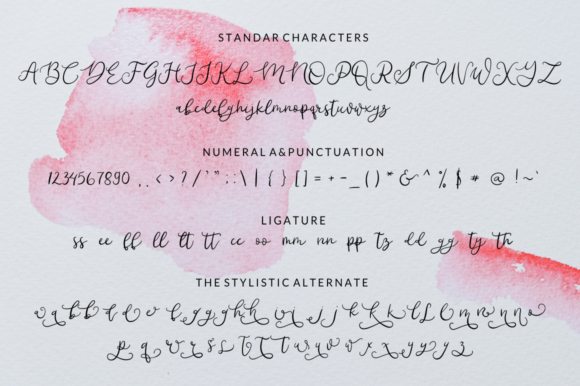 STANDAR CHARACTERS
ABCDEFGHIJKLMNOPQRSTUVWXYZ
abcdefghijklmnopqrstuvwxyz
NUMERAL A&PUNCTUATION
1234567890 . , < > ? / ' " ; : \ | { } [ ] = + - _ ( ) * & ^ % $ # @ ! ~ `
LIGATURE
ss ee ff ll tt tt cc oo mm nn pp tz dd gg ty th
THE STYLISTIC ALTERNATE